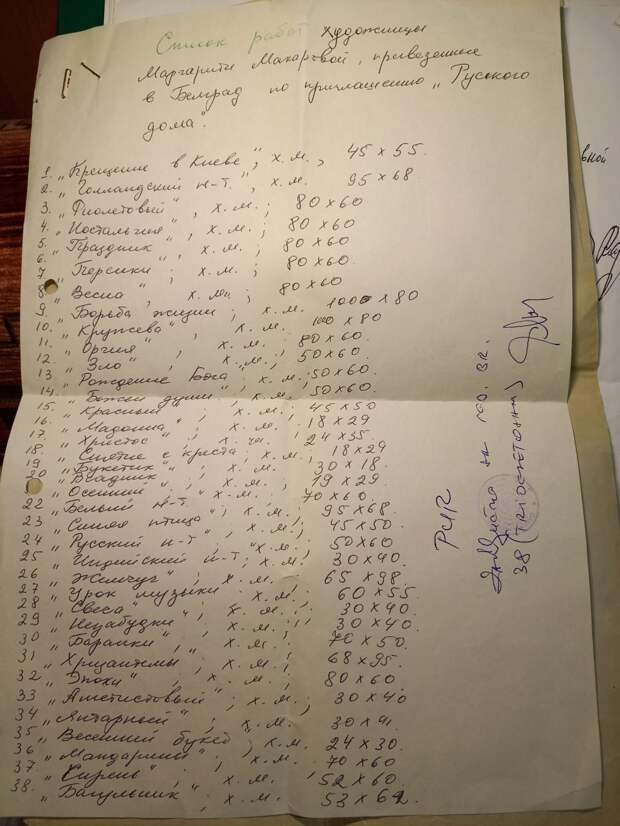 Список работ художницы
Маргариты Макаровой, привезенные
в Белград по приглашению „Русского
дома".
1. „Крещение в Киеве", х.м., 45 х 55.
2. „Голландский н-т.", х.м. 95 х 68
3. „Фиолетовый", х.м.; 80 х 60
4. „Ностальгия", х.м.; 80 х 60
5. „Праздник", х.м.; 80 х 60
6. „Персики"; х.м.; 80 х 60.
7. „Весна", х.м.; 80 х 60
8. „Борьба жизни; х.м. 1000 х 80
9. „Кружева", х.м. 100 х 80
10. „Оргия", х.м. 80 х 60.
11. „Зло", х.м.; 50 х 60.
12. „Рождение Бога", х.м. 50 х 60.
13. души", х.м. 50 х 60.
14. „Красный", х.м. 45 х 50
15. „Мадонна", х.м. 18 х 29
16. „Христос", х.м. 24 х 35
17. „Снятие с креста; х.м. 18 х 29
18. „Букетик", х.м. 30 х 18.
19. „Всадник", х.м. 19 х 29.
20. „Осенний", х.м. 70 х 60.
„Белый н-т", х.м. 95 х 68.
22. „Синяя птица", х.м.; 45 х 50.
23. „Русский н-т; х.м. 50 х 60
24. „Индийский н-т; х.м. 30 х 40.
25. „Жемчуг", х.м. 65 х 98
26. „Урок музыки х.м. 60 х 55
27. х.м. 30 х 40
28. „Незабудки", х.м. 30 х 40.
29. „Баранки", х.м. 70 х 50.
30. „Хризантемы; х.м.; 68 х 95.
31. „Эпохи", х.м.; 80 х 60
32. „Аметистовый", х.м.; 30 х 40
33. „Янтарный"; х.м. 30 х
34. „Весенний букет", х.м. 24 х 30.
35. „Мандарины". х.м. 70 х 60
36. „Сирень"; х.м. 52 х 60.
37. „Багульник", х.м. 53 х
38.
РЧК
на
38 (
вной